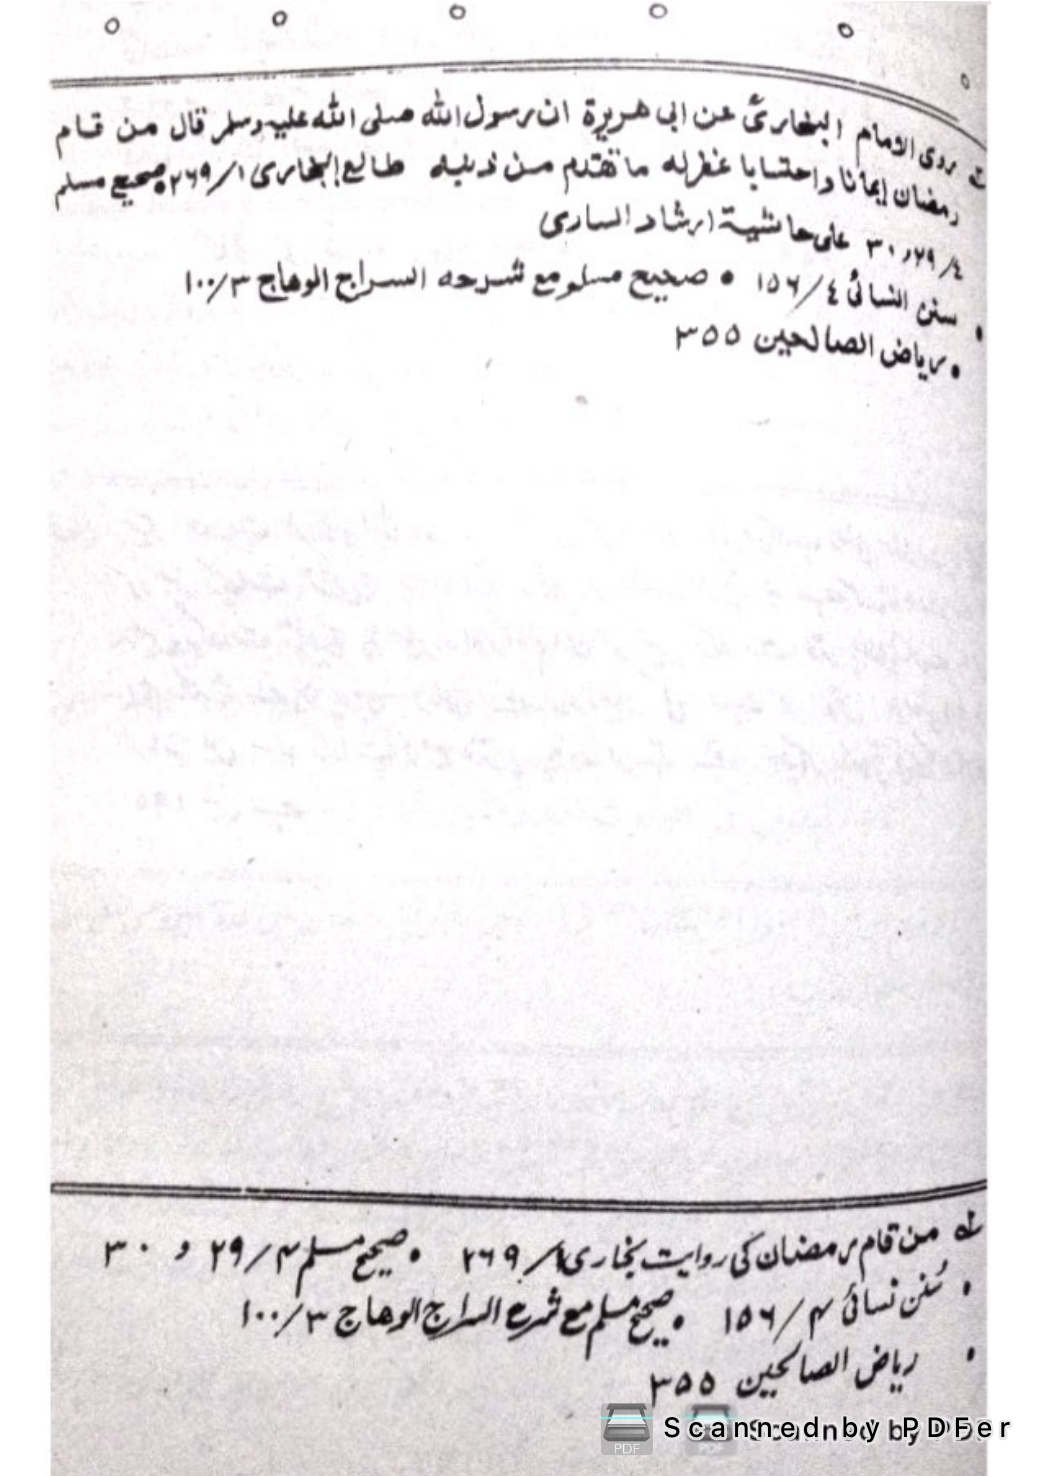 روى الامام البخاريؒ عن ابى هريرة ان رسول الله صلى الله عليه وسلم قال من قام
رمضان إيمانا واحتسابا غفر له ما تقدم من ذنبه طالع البخارى ١/ ٢٦٩، صحيح مسلم
٤/ ٢٩، ٣٠ على حاشية ارشاد السارى
• سنن النسائى ٤/ ١٥٦ • صحيح مسلم مع شرحه السراج الوهاج ٣/ ١٠٠
• رياض الصالحين ٣٥٥
لہ من قام رمضان کی روایت بخاری ١/ ٢٦٩ • صحیح مسلم ۴/ ٢٩ و ٣٠
• سُنن نسائی ۴/ ١٥٦ • صحیح مسلم مع شرح السراج الوهاج ٣/ ١٠٠
• ریاض الصالحین ٣٥٥
Scanned by PDFer